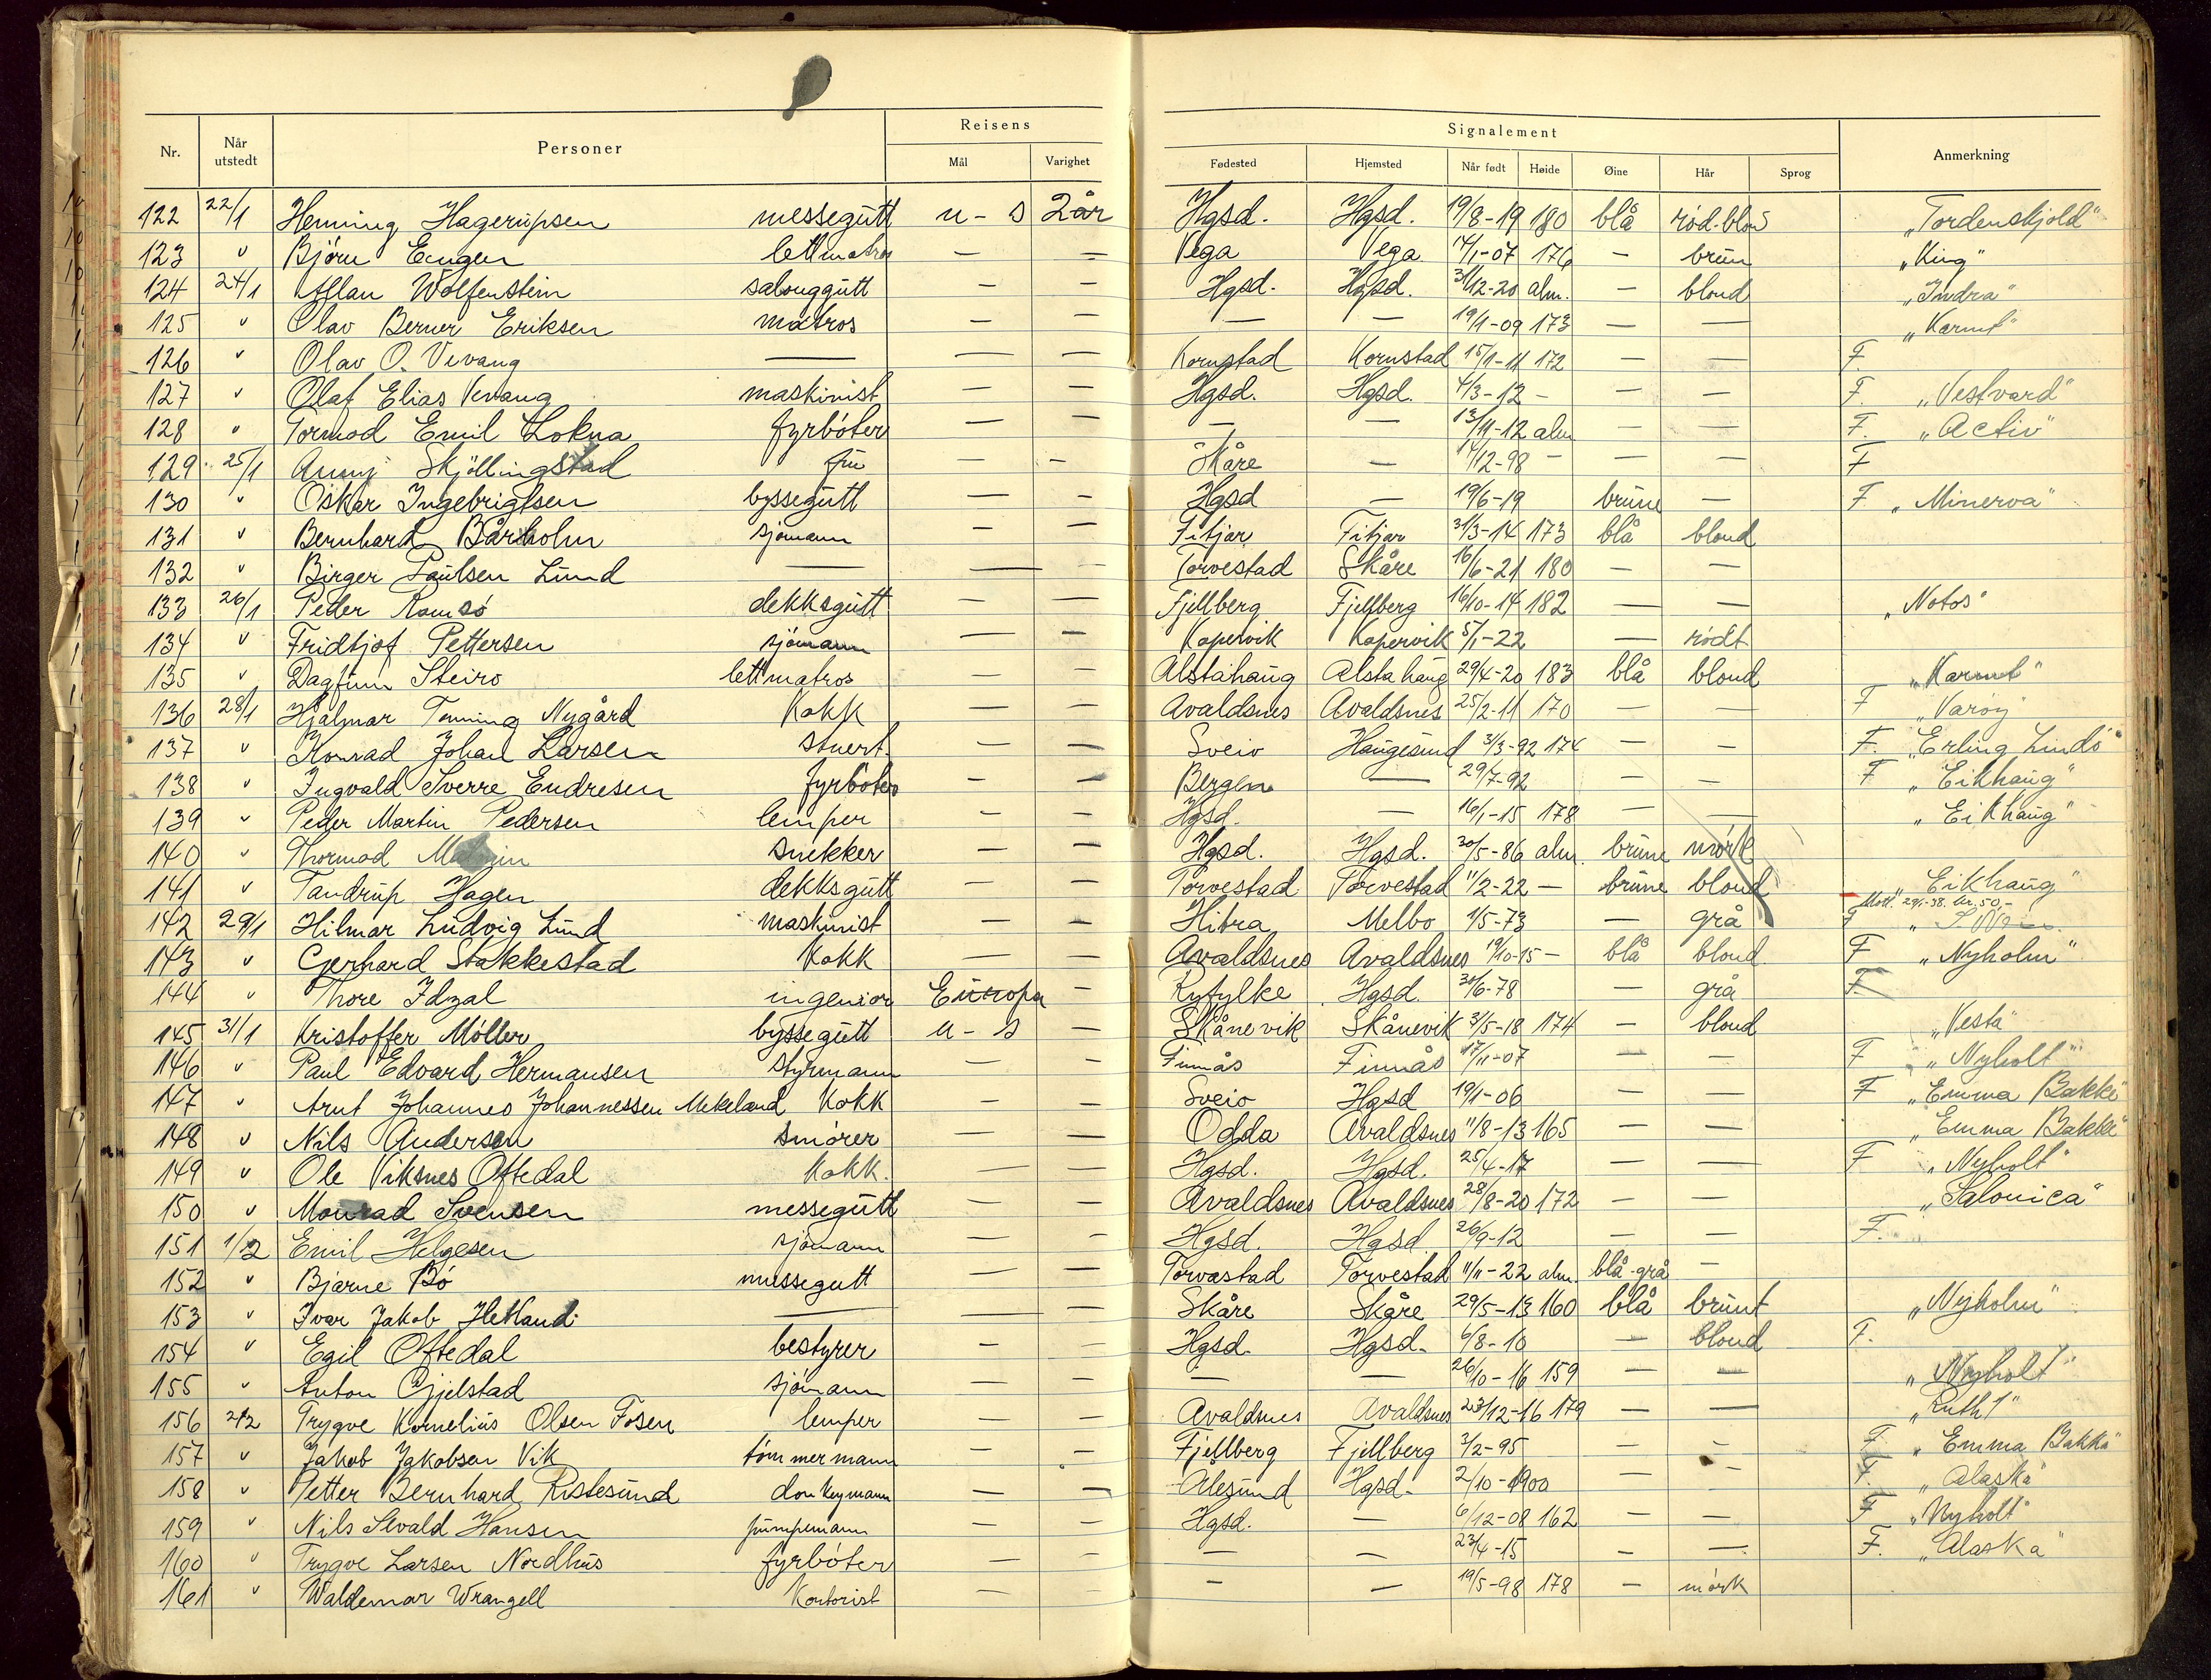 Nr. Når utstedt Personer Reisens Mål Varighet Signalement Fødested Hjemsted Når født Høide Øine Hår Sprog Anmerkning
122 22/1 Henning Hagerupsen messegutt u - s 2 år Hgsd. Hgsd. 19/8-19 180 blå rød-blond "Tordenskjold"
123 " Bjørn Eengen lettmatros — — Vega Vega 14/1-07 176 — brun "King"
124 24/1 Allan Wolfenstein salonggutt — — Hgsd. Hgsd. 31/12-20 alm. — blond "Indra"
125 " Olav Berner Eriksen matros — — — — 19/1-09 173 — — "Karmt"
126 " Olav O. Vevang — — — Kornstad Kornstad 15/1-11 172 — — F.
127 " Olaf Elias Vevang maskinist — — Hgsd. Hgsd. 4/3-12 - — — F. "Vestvard"
128 " Tormod Emil Lokna fyrbøter — — — — 13/11-12 alm — — F. "Activ"
129 25/1 Anny Skjöllingstad fru — — Skåre — 14/12-98 - — — F
130 " Oskar Ingebrigtsen byssegutt — — Hgsd — 19/6-19 brune — F "Minerva"
131 " Bernhard Bårholm sjømann — — Fitjar Fitjar 31/3-14 173 blå blond
132 " Birger Paulsen Lund — — — Torvestad Skåre 16/6-21 180 — —
133 26/1 Peder Ramsö dekksgutt — — Fjellberg Fjellberg 16/10-14 182 — — "Notos"
134 " Fridtjof Pettersen sjömann — — Kopervik Kopervik 5/1-22 — rødt
135 " Dagfinn Steiro lettmatros — — Alstahaug Alstahaug 29/4-20 183 blå blond "Karmt"
136 28/1 Hjalmar Tenning Nygård Kokk — — Avaldsnes Avaldsnes 25/2-11 170 — — F "Varöy
137 " Konrad Johan Larsen stuert. — — Sveio Haugesund 3/3-92 174 — — F. "Erling Lindö"
138 " Ingvald Sverre Endresen fyrbøter — — Bergen — 29/7-92 — — F "Eikhaug"
139 " Peder Martin Pedersen lemper — — Hgsd. — 16/1-15 178 — — "Eikhaug"
140 " Thormod snekker — — Hgsd. Hgsd. 30/5-86 alm. brune mörk
141 " Tandrup Hagen dekksgutt — — Torvestad Torvestad 11/2-22 — brune blond "Eikhaug"
142 29/1 Hilmar Ludvig Lund maskinist — — Hitra Melbo 1/5-73 — grå Mott. 29/1-38. kr. 50,-
143 " Gerhard Stakkestad Kokk — — Avaldsnes Avaldsnes 19/10-15 — blå blond F "Nyholm"
144 " Thore Idzal ingeniør Europa — Ryfylke Hgsd. 30/6-78 — grå F
145 31/1 Kristoffer Möller byssegutt u - s — Skånevik Skånevik 3/5-18 174 — blond "Vesta"
146 " Paul Edvard Hermansen styrmann — — Finnås Finnås 17/11-07 — — F "Nyholt"
147 " Arnt Johannes Johannessen Mekeland Kokk — — Sveio Hgsd 19/1-06 — — F "Emma Bakke"
148 " Nils Andersen smörer — — Odda Avaldsnes 11/8-13 165 — — "Emma Bakke"
149 " Ole Viksnes Oftedal Kokk. — — Hgsd. Hgsd. 25/4-17 — — F "Nyholt"
150 " Monrad Svensen messegutt — — Avaldsnes Avaldsnes 28/8-20 172 — — "Salonica"
151 1/2 Emil Helgesen sjömann — — Hgsd. Hgsd 26/9-12 — — F.
152 " Bjarne Bö messegutt — — Torvastad Torvestad 11/11-22 alm. blå-grå —
153 " Ivar Jakob Hetland — — — Skåre Skåre 29/5-13 160 blå brunt "Nyholm"
154 " Egil Oftedal bestyrer — — Hgsd. Hgsd. 6/8-10 — blond F.
155 " Anton Gjelstad sjömann — — — — 26/10-16 159 — — "Nyholt"
156 2/2 Trygve Kornelius Olsen Fosen lemper — — Avaldsnes Avaldsnes 23/12-16 179 — — "Ruth 1"
157 " Jakob Jakobsen Vik tömmermann — — Fjellberg Fjellberg 3/2-95 — — F. "Emma Bakke"
158 " Petter Bernhard Ristesund donkeymann — — Alesund Hgsd. 2/10-1900 — — F. "Alaska"
159 " Nils Sevald Hansen pumpemann — — Hgsd. — 6/12-08 162 — — F "Nyholt"
160 " Trygve Larsen Nordhus fyrböter — — — — 23/4-15 — — F. "Alaska"
161 " Waldemar Wrangell Kontorist — — — — 19/5-98 178 — mörk